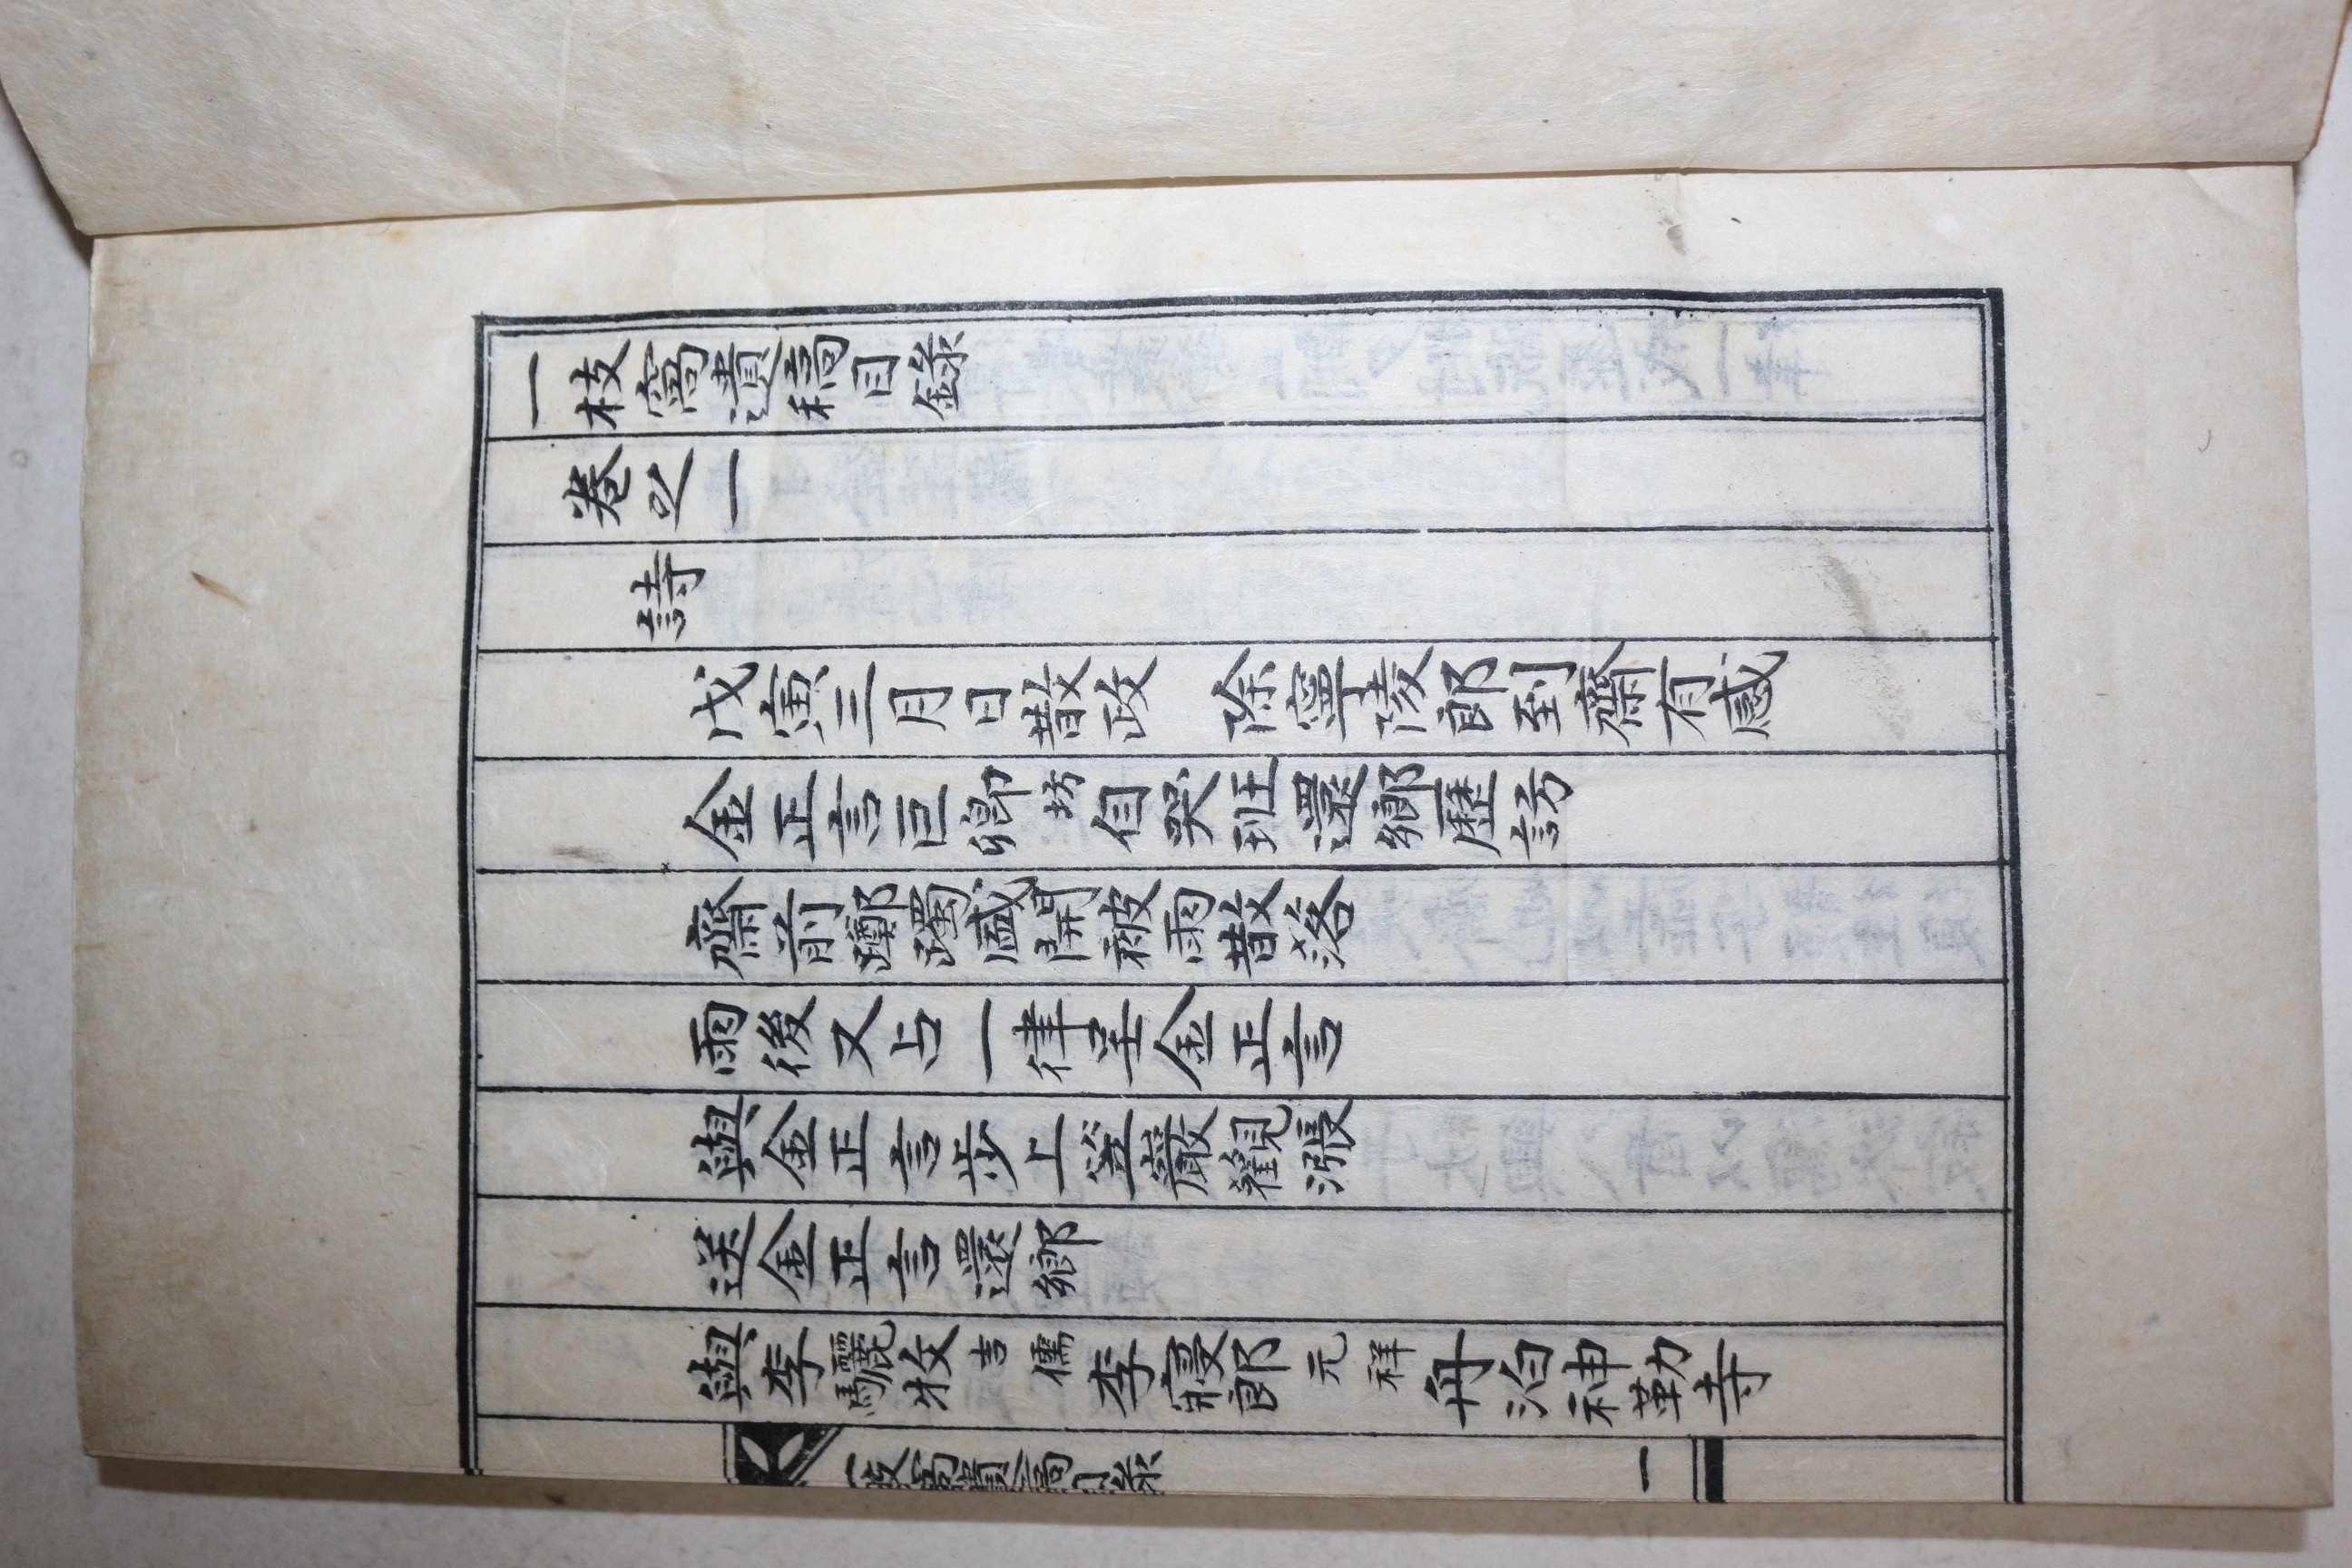 一枝窩遺稿目錄
卷之一
詩
戊寅三月日散政 除寧陵郎到齋有感
金正言巨卿坊自哭班還鄉歷訪
齋前躑躅盛開被雨散落
雨後又占一律呈金正言
與金正言步上笠巖觀漲
送金正言還鄉
與李驪牧吉儒李寢郎元祥舟泊神勒寺
一枝窩遺稿目錄 一